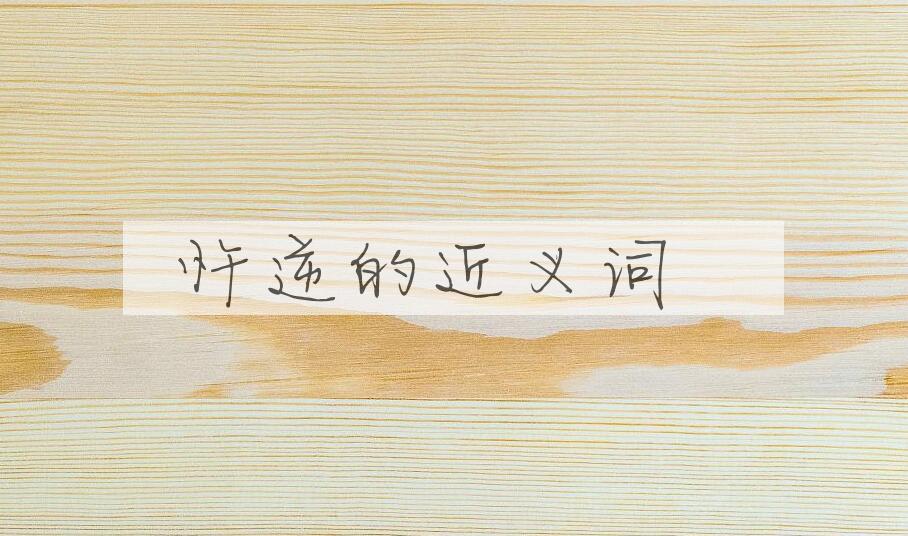 忤逆的近义词